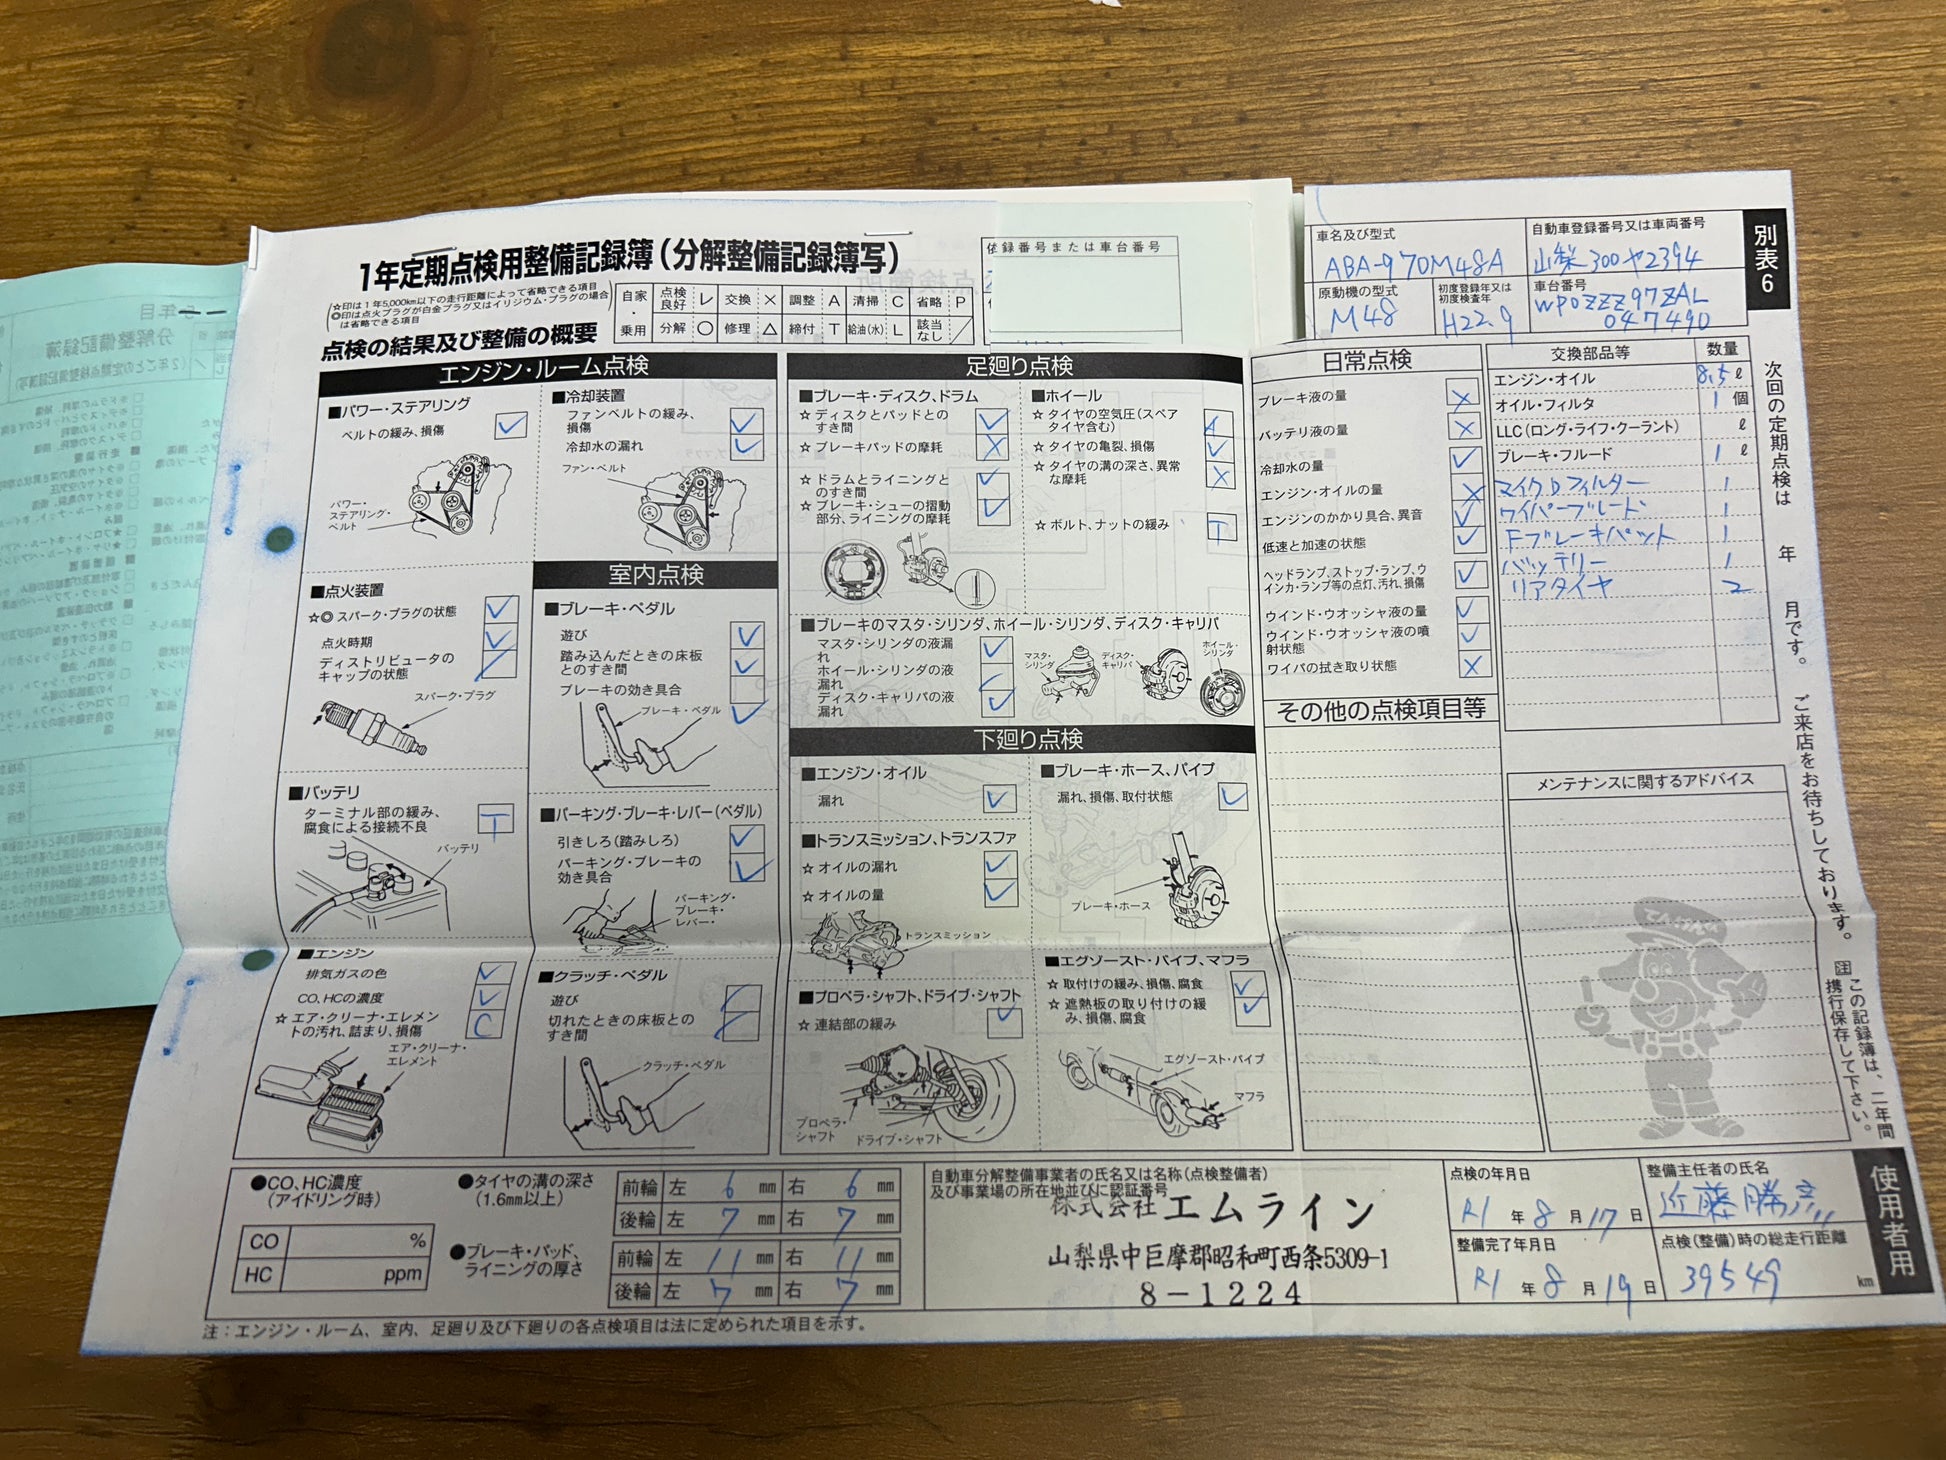 1年定期点検用整備記録簿(分解整備記録簿写)
☆印は1年5,000km以下の走行距離によって省略できる項目
◎印は点火プラグが白金プラグ又はイリジウム・プラグの場合
は省略できる項目
自家・乗用
点検良好 レ 交換 × 調整 A 清掃 C 省略 P
分解 ○ 修理 △ 締付 T 給油(水) L 該当なし ／
点検の結果及び整備の概要
録番号または車台番号
車名及び型式
ABA-970M48A
自動車登録番号又は車両番号
山梨300ヤ2394
原動機の型式
M48
初度登録年又は
初度検査年
H22.9
車台番号
WP0ZZZ97ZAL
047490
別表6
エンジン・ルーム点検
■パワー・ステアリング
ベルトの緩み、損傷 レ
パワー・
ステアリング・
ベルト
■点火装置
☆◎ スパーク・プラグの状態 レ
点火時期 レ
ディストリビュータの
キャップの状態 ／
スパーク・プラグ
■バッテリ
ターミナル部の緩み、
腐食による接続不良 T
バッテリ
■エンジン
排気ガスの色 レ
CO、HCの濃度 レ
☆ エア・クリーナ・エレメン
トの汚れ、詰まり、損傷 C
エア・クリーナ・
エレメント
■冷却装置
ファンベルトの緩み、
損傷 レ
冷却水の漏れ レ
ファン・ベルト
室内点検
■ブレーキ・ペダル
遊び レ
踏み込んだときの床板
とのすき間 レ
ブレーキの効き具合 レ
ブレーキ・ペダル
■パーキング・ブレーキ・レバー(ペダル)
引きしろ(踏みしろ) レ
パーキング・ブレーキの
効き具合 レ
パーキング・
ブレーキ・
レバー・
■クラッチ・ペダル
遊び ／
切れたときの床板との
すき間 ／
クラッチ・ペダル
足廻り点検
■ブレーキ・ディスク、ドラム
☆ ディスクとパッドとの
すき間 レ
☆ ブレーキパッドの摩耗 ×
☆ ドラムとライニングと
のすき間 レ
☆ ブレーキ・シューの摺動
部分、ライニングの摩耗 レ
■ホイール
☆ タイヤの空気圧(スペア
タイヤ含む) A
☆ タイヤの亀裂、損傷 レ
☆ タイヤの溝の深さ、異常
な摩耗 ×
☆ ボルト、ナットの緩み T
■ブレーキのマスタ・シリンダ、ホイール・シリンダ、ディスク・キャリパ
マスタ・シリンダの液漏
れ レ
ホイール・シリンダの液
漏れ ／
ディスク・キャリパの液
漏れ レ
マスタ・
シリンダ
ディスク・
キャリパ
ホイール・
シリンダ
下廻り点検
■エンジン・オイル
漏れ レ
■トランスミッション、トランスファ
☆ オイルの漏れ レ
☆ オイルの量 レ
トランスミッション
■プロペラ・シャフト、ドライブ・シャフト
☆ 連結部の緩み レ
プロペラ・
シャフト
ドライブ・シャフト
■ブレーキ・ホース、パイプ
漏れ、損傷、取付状態 レ
ブレーキ・ホース
■エグゾースト・パイプ、マフラ
☆ 取付けの緩み、損傷、腐食 レ
☆ 遮熱板の取り付けの緩
み、損傷、腐食 レ
エグゾースト・パイプ
マフラ
日常点検
ブレーキ液の量 ×
バッテリ液の量 ×
冷却水の量 レ
エンジン・オイルの量 ×
エンジンのかかり具合、異音 レ
低速と加速の状態 レ
ヘッドランプ、ストップ・ランプ、ウ
インカ・ランプ等の点灯、汚れ、損傷 レ
ウインド・ウオッシャ液の量 レ
ウインド・ウオッシャ液の噴
射状態 レ
ワイパの拭き取り状態 ×
その他の点検項目等
交換部品等 数量
エンジン・オイル 8.5 ℓ
オイル・フィルタ 1 個
LLC(ロング・ライフ・クーラント) ℓ
ブレーキ・フルード 1 ℓ
マイクロフィルター 1
ワイパーブレード 1
Fブレーキパット 1
バッテリー 1
リアタイヤ 2
メンテナンスに関するアドバイス
次回の定期点検は 年 月です。ご来店をお待ちしております。
注 この記録簿は、二年間
携行保存して下さい。
使用者用
●CO、HC濃度
(アイドリング時)
CO %
HC ppm
●タイヤの溝の深さ
(1.6mm以上)
前輪 左 6 mm 右 6 mm
後輪 左 7 mm 右 7 mm
●ブレーキ・パッド、
ライニングの厚さ
前輪 左 11 mm 右 11 mm
後輪 左 7 mm 右 7 mm
自動車分解整備事業者の氏名又は名称(点検整備者)
及び事業場の所在地並びに認証番号
株式会社エムライン
山梨県中巨摩郡昭和町西条5309-1
8-1224
点検の年月日
R1 年 8 月 17 日
整備完了年月日
R1 年 8 月 19 日
整備主任者の氏名
近藤勝彦
点検(整備)時の総走行距離
39549 km
注：エンジン・ルーム、室内、足廻り及び下廻りの各点検項目は法に定められた項目を示す。